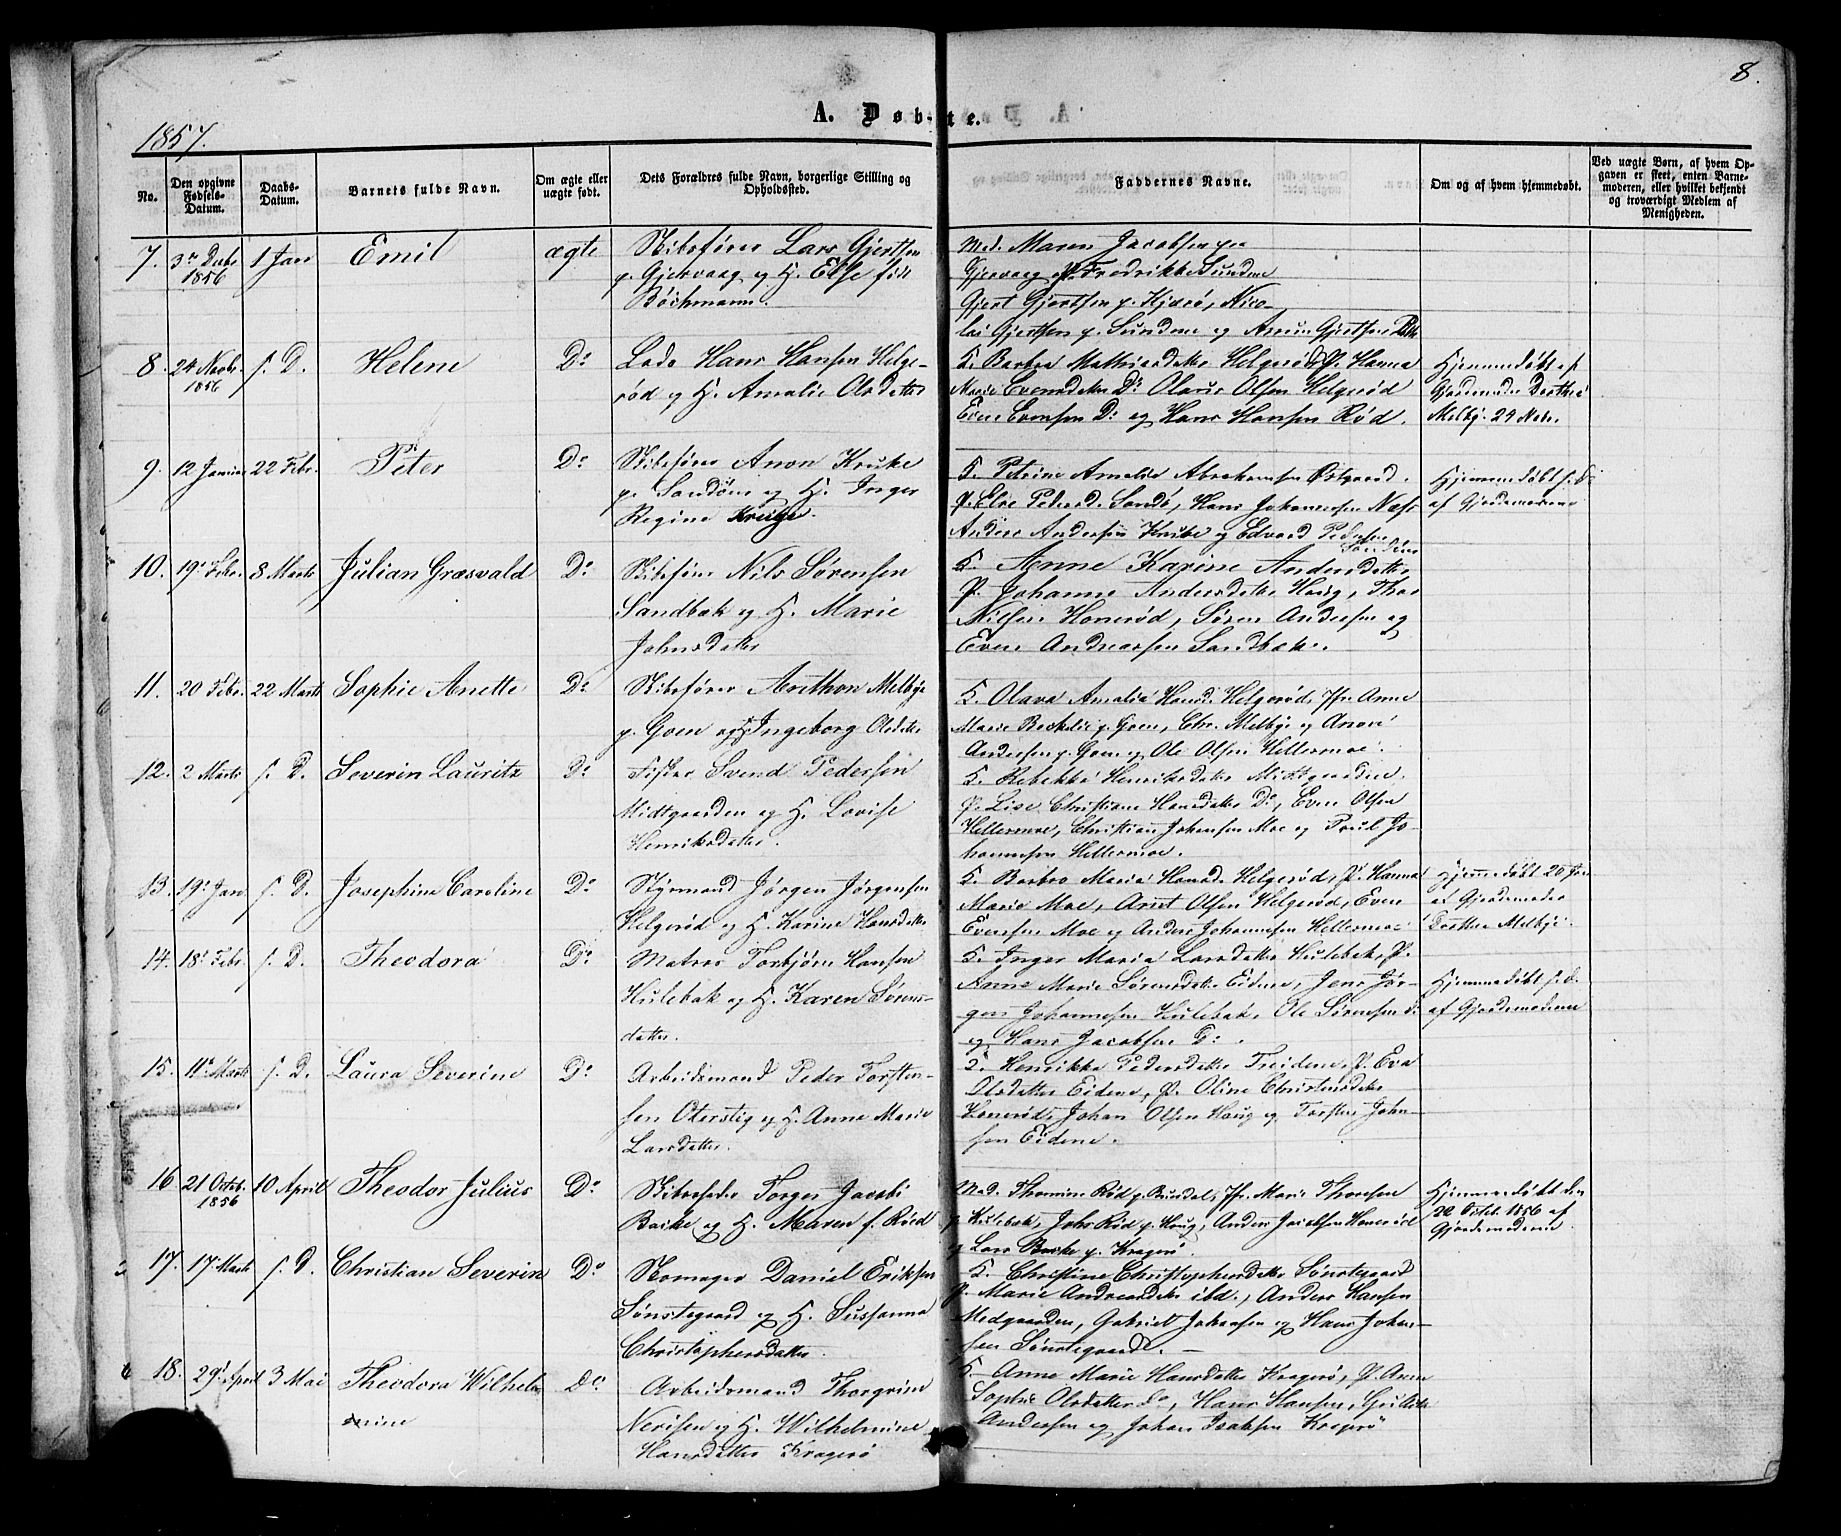 8.
A. Døbte.
1857.
No.
Den opgivne Fødsels-Datum.
Daabs-Datum.
Barnets fulde Navn.
Om ægte eller uægte født.
Dets Forældres fulde Navn, borgerlige Stilling og Opholdssted.
Faddernes Navne.
Om og af hvem hjemmedøbt.
Ved uægte Børn, af hvem Opgaven er skeet, enten Barnemoderen, eller hvilket bekjendt og troværdigt Medlem af Menigheden.
7. 3 Decbr 1856 1 Jan Emil ægte
Skibsfører Lars Gjertsen
p. Gjervaag og H. Else født
Bochmann.
Mad. Maren Jacobsen
Gjervaag Fredrikke Sundene
Gjert Gjertsen p. Nico-
lai Gjertsen p. Sundene og Gjertsen
8. 24 Novbr. 1856 s. D. Helene Do
Lods Hans Hansen Helge-
rød og H. Amalie Olsdatter
K. Barbra Mathiasdatter Helgerød, P. Hanna
Marie Evensdatter Do Olaus Olsen Helgerød
Even Evensen Do og Hans Hansen Rød.
Hjemmedøbt af
Gjordemoder Dorthea
Melby 24 Novbr.
9. 12 Januar 22 Febr. Peter Do
Skibsfører Anon Kruke
p. Sandøen og H. Inger
Regine Kruge.
K. Petrine Amalie Abrahamsen Østgaard.
P. Else Pedersd. Sandø, Hans Johannesen Næs
Anders Andersen Kruke og Edvard Pedersen
Sandøen
Hjemmedøbt s. D.
af Gjordemoderen
10. 19 Febr. 8 Marts Julian Grasvald Do
Skibsfører Nils Sørensen
Sandbak og H. Marie
Johnsdatter
K. Anne Karine Andersdatter
P. Johanne Andersdatter Haug, Thor
Nilsen Honerød, Søren Andersen og
Even Andreassen Sandbak.
11. 20 Febr. 22 Marts Sophie Anette Do
Skibsfører Anthon Melbye
p. Goen og H. Ingeborg Olsdatter
K. Olava Amalia Hansd. Helgerød, Jfr. Anne
Marie p. Goen, Chr. Melbye og
Andersen p. Goen og Ole Olsen Hellermoe.
12. 2 Marts s. D. Severin Lauritz Do
Fisker Svend Pedersen
Midtgaarden og H. Lovise
Henriksdatter.
K. Rebekka Henriksdatter Midtgaarden.
P. Lise Christiane Hansdatter Do, Even Olsen
Hellermoe, Christian Johansen Moe og Poul Jo-
hannesen Hellermoe.
13. 19 Jan s. D. Josephine Caroline Do
Styrmand Jørgen Jørgensen
Helgerød og H. Karine Hansdatter
K. Barbro Maria Hansd. Helgerød, P. Hanna
Marie Moe, Arnt Olsen Helgerød, Even
Evensen Moe og Anders Johannesen Hellermoe
Hjemmedøbt 20 Jan
af Gjordemoder
Dorthea Melbye.
14. 18 Febr. s. D. Theodora Do
Matros Torbjørn Hansen
Hulebak og H. Karen Sørens-
datter.
K. Inger Maria Larsdatter Hulebak, P.
Anne Marie Sørensdatter Eidene, Jens Jør-
gen Johannesen Hulebak, Ole Sørensen Do
og Hans Jacobsen Do.
Hjemmedøbt s. D.
af Gjordemoderen
15. 11 Marts s. D. Laura Severine Do
Arbeidsmand Peder Torsten-
sen Oterstig og H. Anne Marie
Larsdatter.
K. Henrikke Pedersdatter Treidene, P. Eva
Olsdatter Eidene, P. Oline Christensdatter
Honerød, Johan Olsen Haug og Torsten John-
sen Eidene.
16 21 Octob. 1856 10 April Theodor Julius Do
Skibsreder Torger Jacobi
Backe og H. Maren f. Røed
Mad. Thomine Rød p. Jfr. Marie Thoresen
p. Hulebak, Johs Rød p. Haug, Anders Jacobsen Honerød
og Lars Backe p. Kragerø.
Hjemmedøbt den
22 Octbr 1856 af
Gjordemoderen.
17. 17 Marts s. D. Christian Severin Do
Skomager Daniel Eriksen
Sønstegaard og H. Susanna
Christophersdatter.
K. Christine Christophersdatter Sønstegaard
P. Marie Andreasdatter ibd., Anders Hansen
Medgaarden, Gabriel Johansen og Hans Johan-
sen Sønstegaard. —
18. 29 April 3 Mai Theodora Wilhelm
mine Do
Arbeidsmand Thorgrim
Nerisen og H. Wilhelmine
Hansdatter Kragerø
K. Anne Marie Hansdatter Kragerø, P. Anne
Sophie Olsdatter Do, Hans Hansen,
Andersen og Johan Isaksen Kragerø